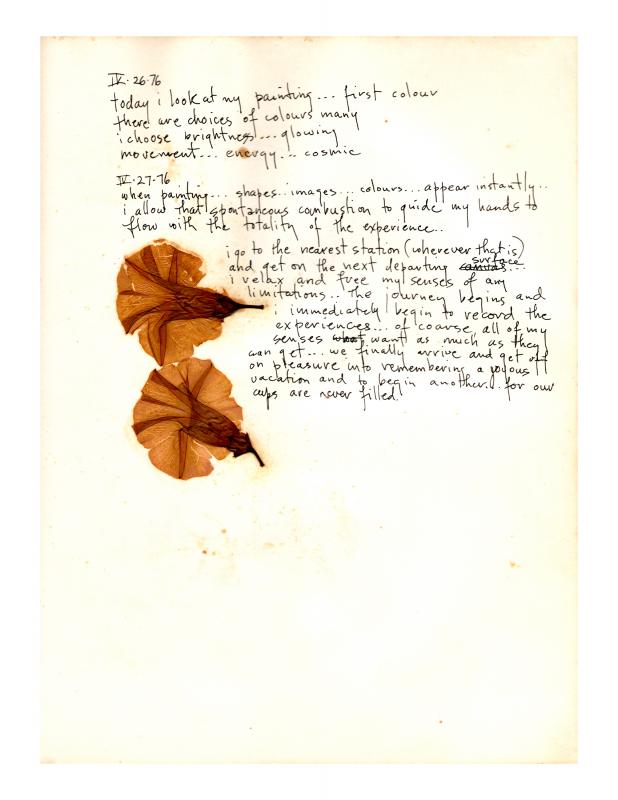 IV·26·76
today i look at my painting... first colour
there are choices of colours many
i choose brightness... glowing
movement... energy... cosmic
IV·27·76
when painting... shapes.. images... colours... appear instantly..
i allow that spontaneous combustion to guide my hands to
flow with the totality of the experience..
i go to the nearest station (wherever that is)
and get on the next departing canvas surface...
i relax and free my senses of any
limitations.. The journey begins and
i immediately begin to record the
experiences... of coarse all of my
senses what want as much as they
can get... we finally arrive and get off
on pleasure into remembering a joyous
vacation and to begin another... for our
cups are never filled!